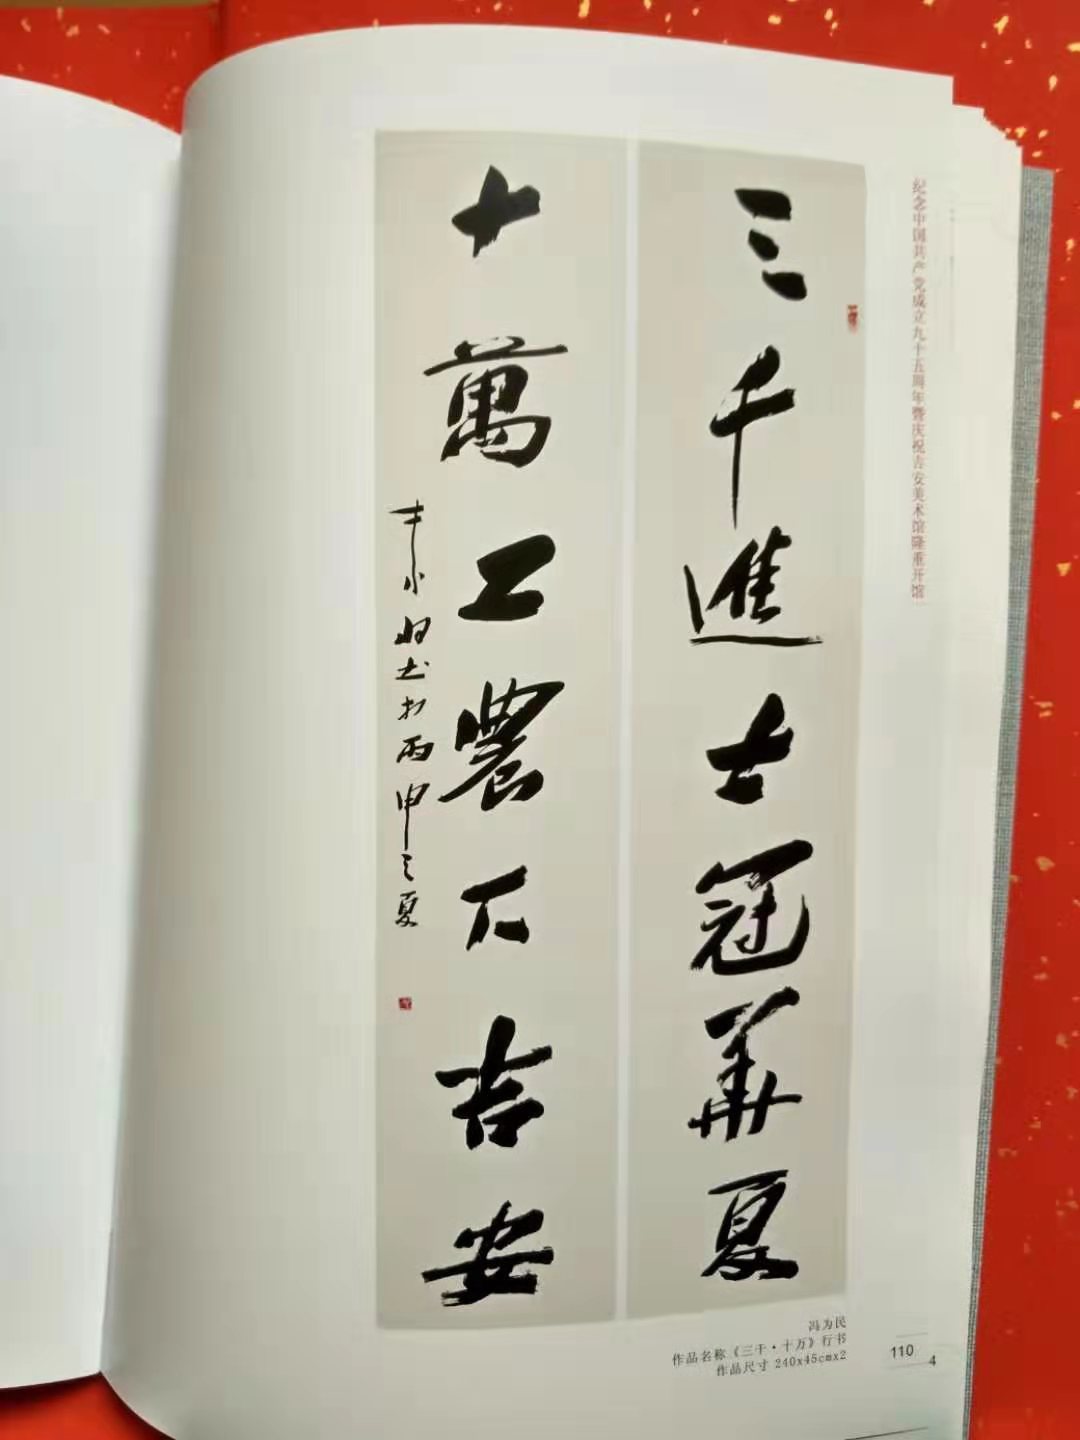 纪念中国共产党成立九十五周年暨庆祝吉安美术馆隆重开馆
三千進士冠華夏
十萬工農下吉安
丙申之夏
冯为民
作品名称《三千·十万》行书
作品尺寸 240x45cmx2
110
4